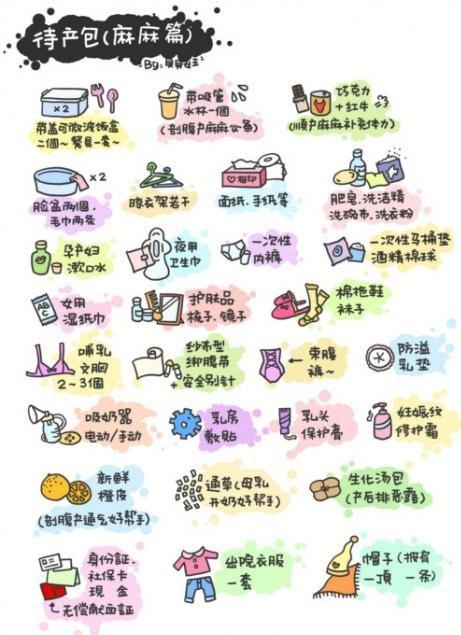 待产包(麻麻篇)
By:贝贝娃
×2
带盖可微波饭盒
二個~餐具一套~
带吸管
水杯一個
(剖腹产麻麻必备)
巧克力
+红牛
(顺产麻麻补充体力)
×2
脸盆两個.
毛巾两条
晾衣架若干
心相印
面纸.手纸等
肥皂.洗洁精
洗碗布.洗衣粉
孕产妇
漱口水
夜用
卫生巾
一次性
内裤
一次性马桶垫
酒精棉球
ABC
女用
湿纸巾
护肤品
梳子.镜子
棉拖鞋
袜子
哺乳
文胸
2~3個
纱布型
绑腹带
+安全别针
束腹
裤~
防溢
乳垫
吸奶器
电动/手动
乳房
敷贴
乳头
保护膏
妊娠纹
修护霜
新鲜
橙皮
(剖腹产通气好帮手)
通草(母乳
开奶好帮手)
生化汤包
(产后排恶露)
身份証.
社保卡
現 金
无偿献血証
出院衣服
一套
帽子(披肩
一頂 一条)